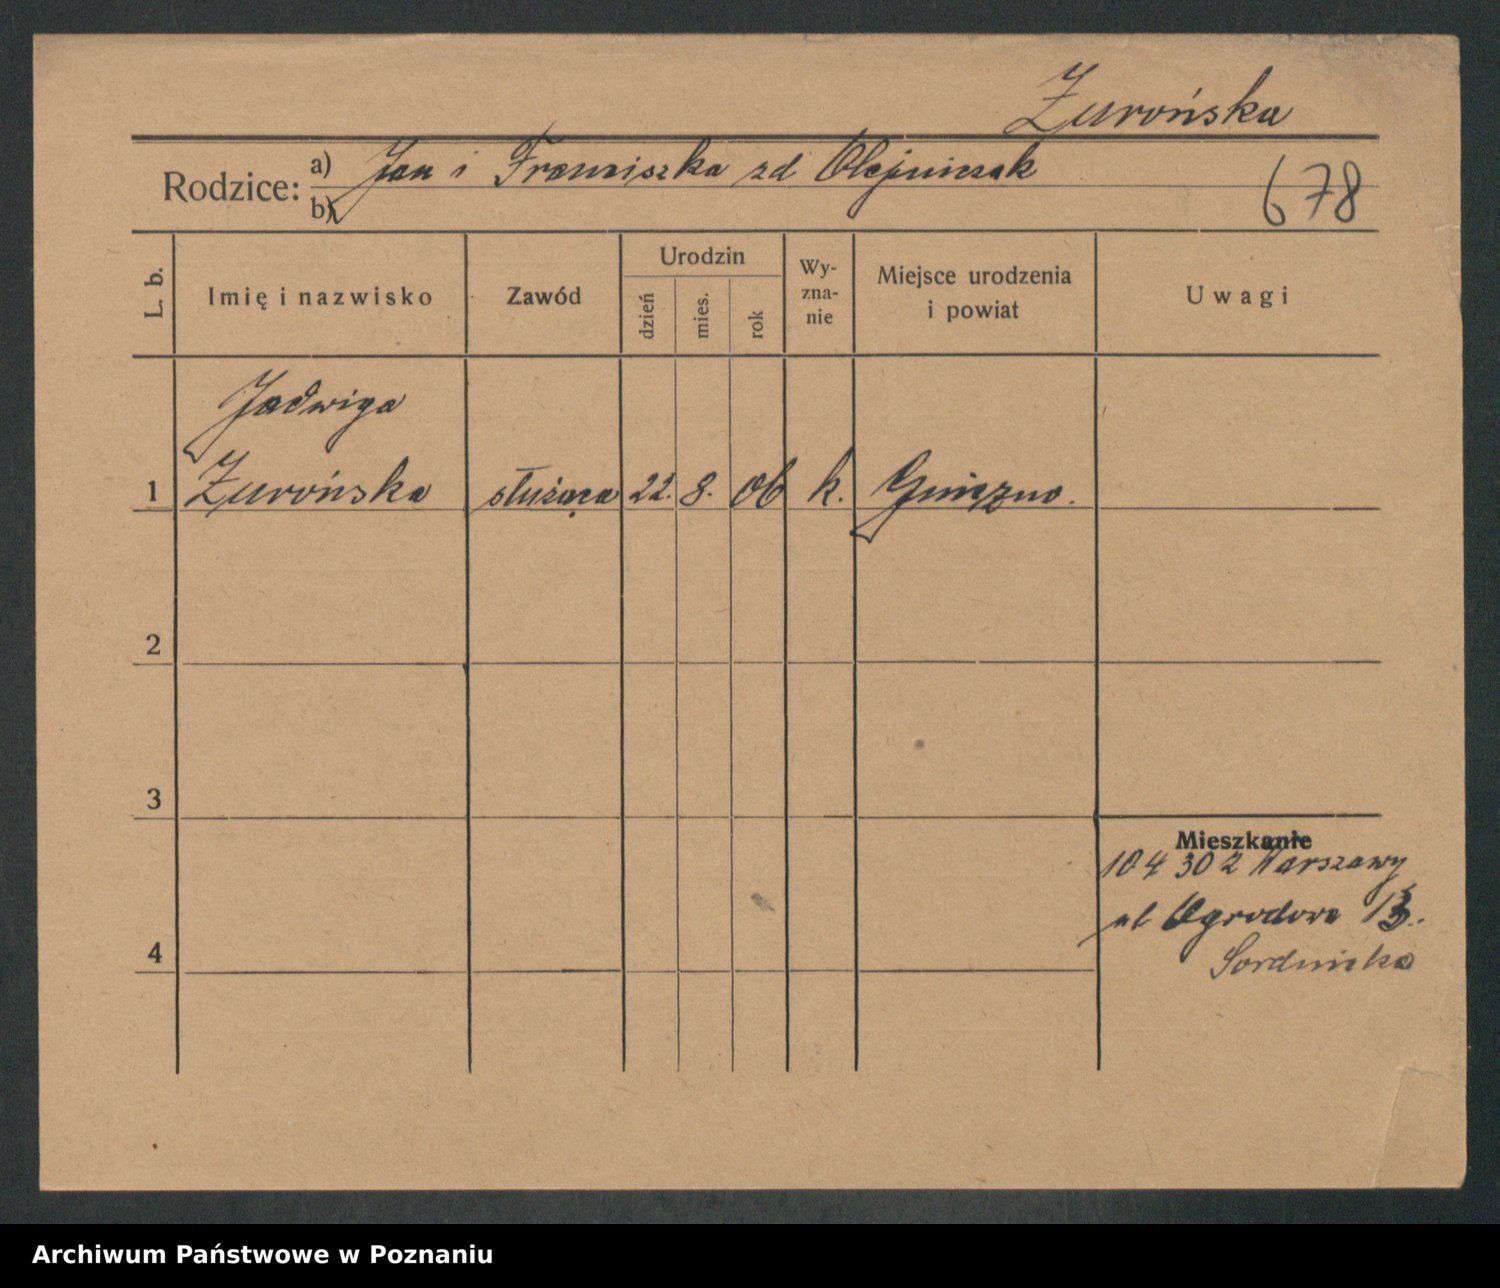 Żurońska
Rodzice: a) Jan i Franciszka zd Olejniczak
b)
678
L. b.
Imię i nazwisko
Zawód
Urodzin
dzień
mies.
rok
Wy-
zna-
nie
Miejsce urodzenia
i powiat
Uwagi
Jadwiga
1 Żurońska służąca 22. 8. 06 k. Gniezno.
2
3
Mieszkanie
10 4 30 z Warszawy
ul Ogrodowa 13.
4
Archiwum Państwowe w Poznaniu